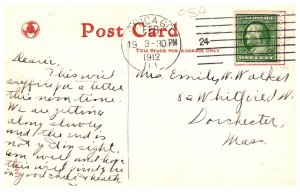 054
Post Card
THIS SPACE FOR ADDRESS ONLY
CHICAGO
19 3-30PM
1912
ILL
24
ONE CENT
Dearie,
This will
suffice for a letter
this noon time.
We are getting
along slowly
and the end is
not yet in sight.
Am well and hope
this will find you be
in good cheer & health
Mrs. Emily W. Walker
82 Whitfield St
Dorchester,
Mass.